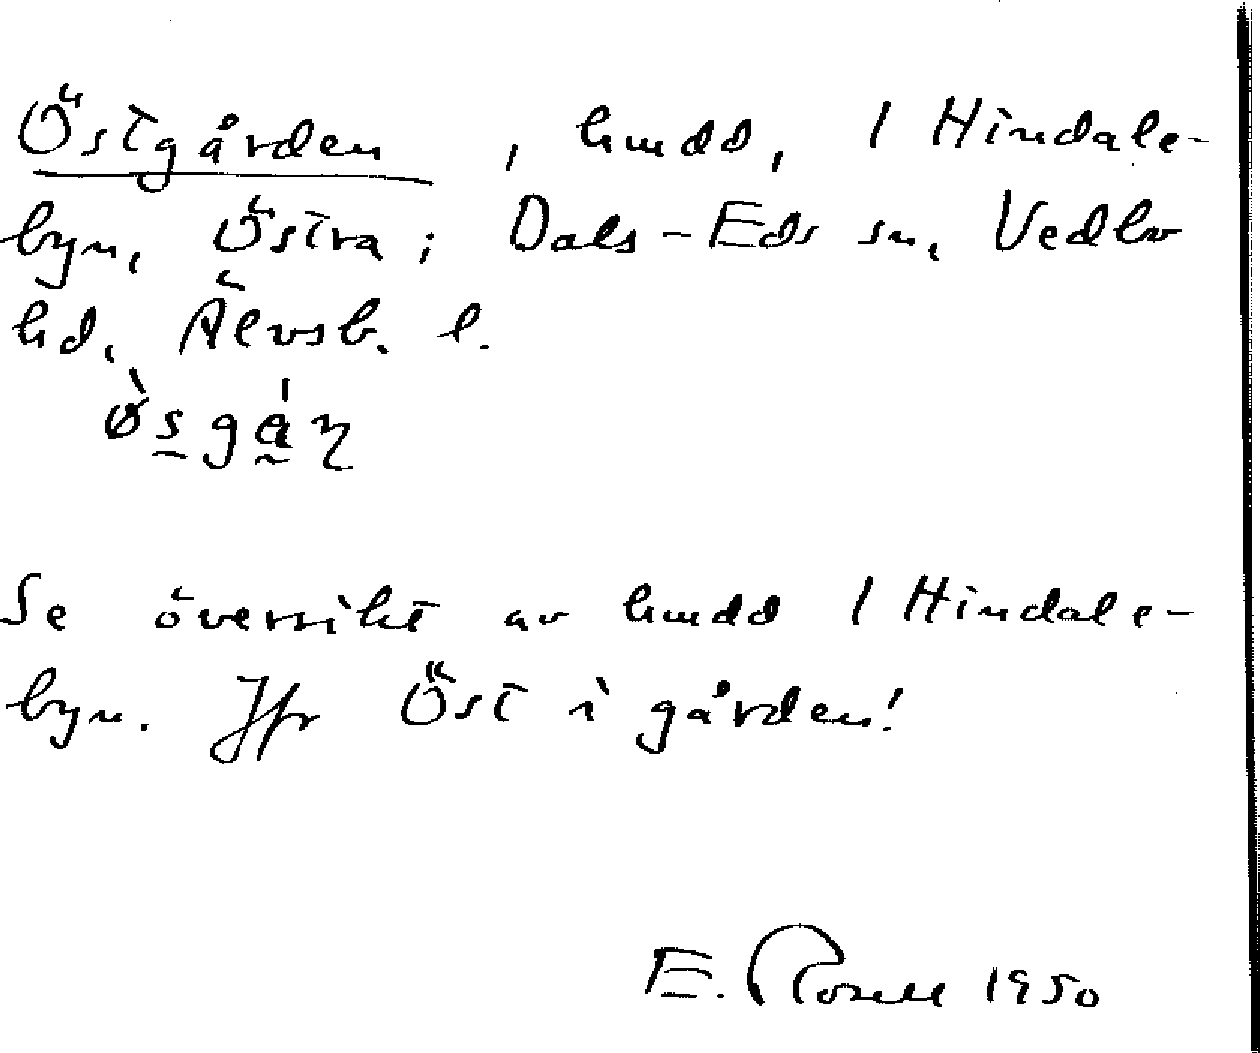 Östgården, hmdd, 1 Hindale-
byn, Östra; Dals-Eds sn, Vedbo
hd, Älvsb. l.

Se översikt av hmdd 1 Hindale-
byn. Jfr Öst i gården!
E. Rosell 1950